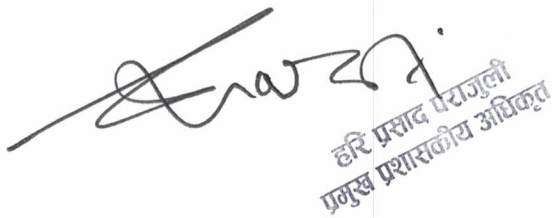 हरि प्रसाद पराजुली
प्रमुख प्रशासकीय अधिकृत